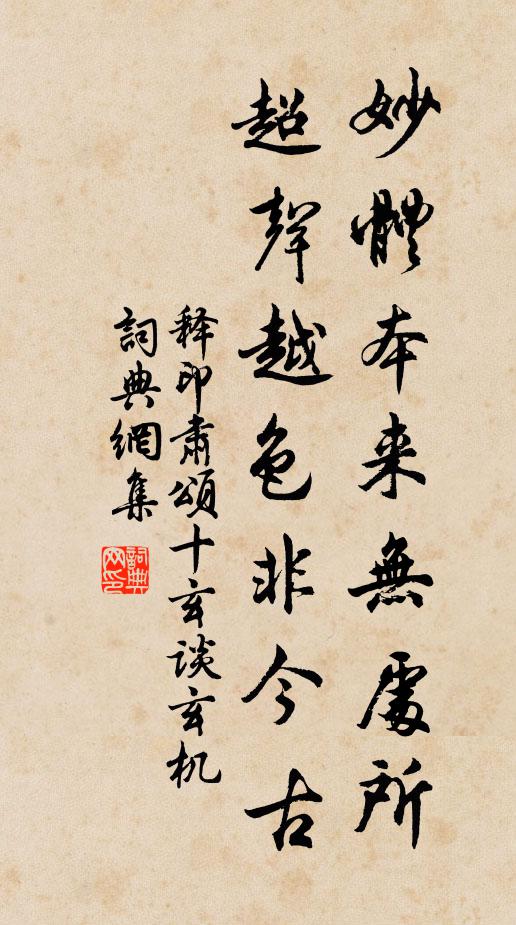 妙體本来無處所
超聲越色非今古
释印肅頌十玄谈玄机
詞典網集
詞典网印